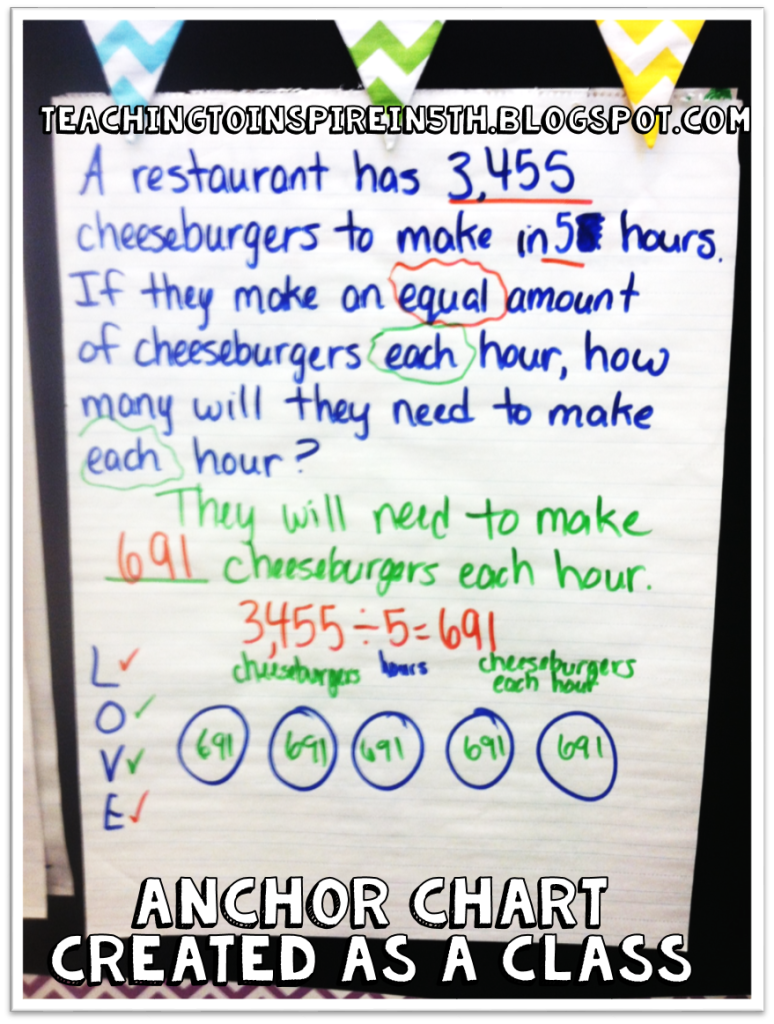 TEACHINGTOINSPIREIN5TH.BLOGSPOT.COM
A restaurant has 3,455
cheeseburgers to make in 5 hours.
If they make an equal amount
of cheeseburgers each hour, how
many will they need to make
each hour?
They will need to make
691 cheeseburgers each hour.
3,455 ÷ 5 = 691
cheeseburgers hours cheeseburgers
each hour
L ✓
O ✓
V ✓ 691 691 691 691 691
E ✓
ANCHOR CHART
CREATED AS A CLASS